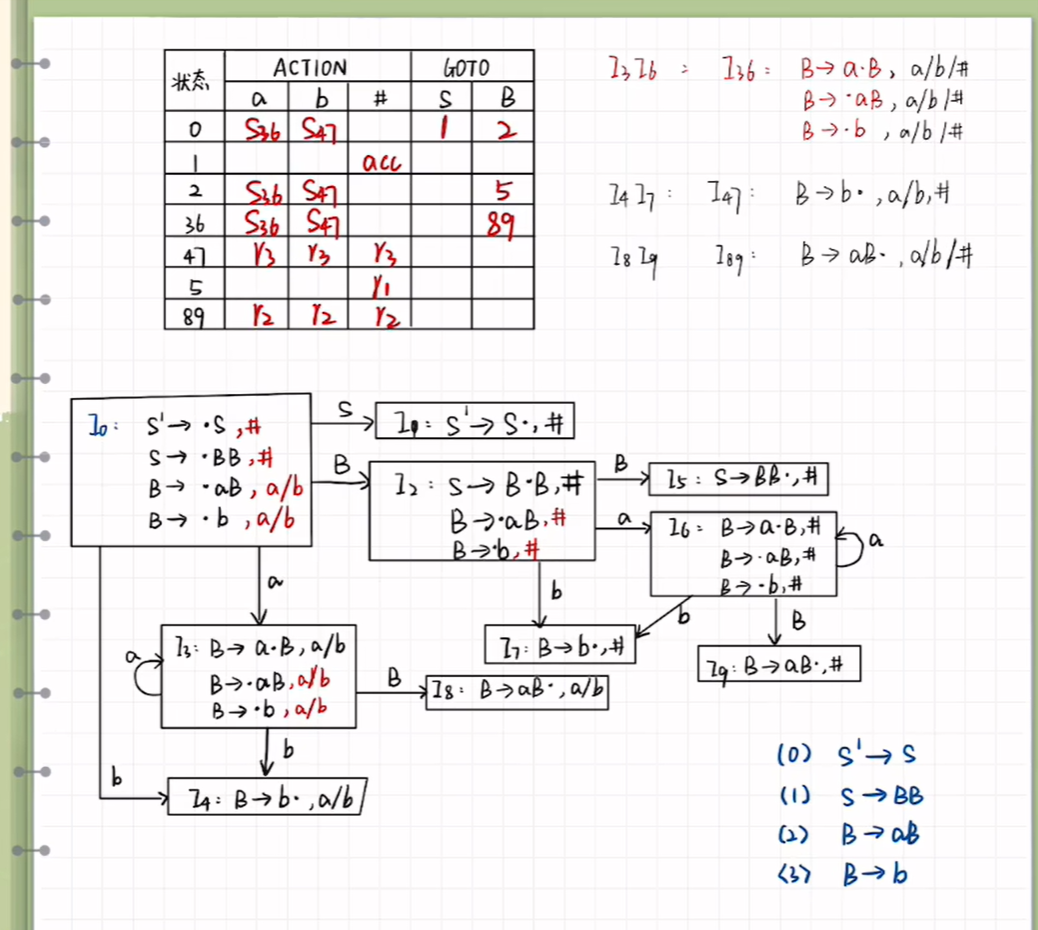 状态 ACTION GOTO
a b # S B
0 S36 S47 1 2
1 acc
2 S36 S47 5
36 S36 S47 89
47 r3 r3 r3
5 r1
89 r2 r2 r2
I3I6 : I36 : B→a·B, a/b/#
B→·aB, a/b/#
B→·b, a/b/#
I4I7 : I47 : B→b·, a/b,#
I8I9 I89 : B→aB·, a/b/#
I0: S'→·S,#
S→·BB,#
B→·aB, a/b
B→·b, a/b
S
I1: S'→S·,#
B
I2: S→B·B,#
B→·aB,#
B→·b,#
B
I5: S→BB·,#
a
I6: B→a·B,#
B→·aB,#
B→·b,#
a
a
b
b
B
I7: B→b·,#
I9: B→aB·,#
a
I3: B→a·B, a/b
B→·aB, a/b
B→·b, a/b
B
I8: B→aB·, a/b
b
b
I4: B→b·, a/b
(0) S'→S
(1) S→BB
(2) B→aB
(3) B→b